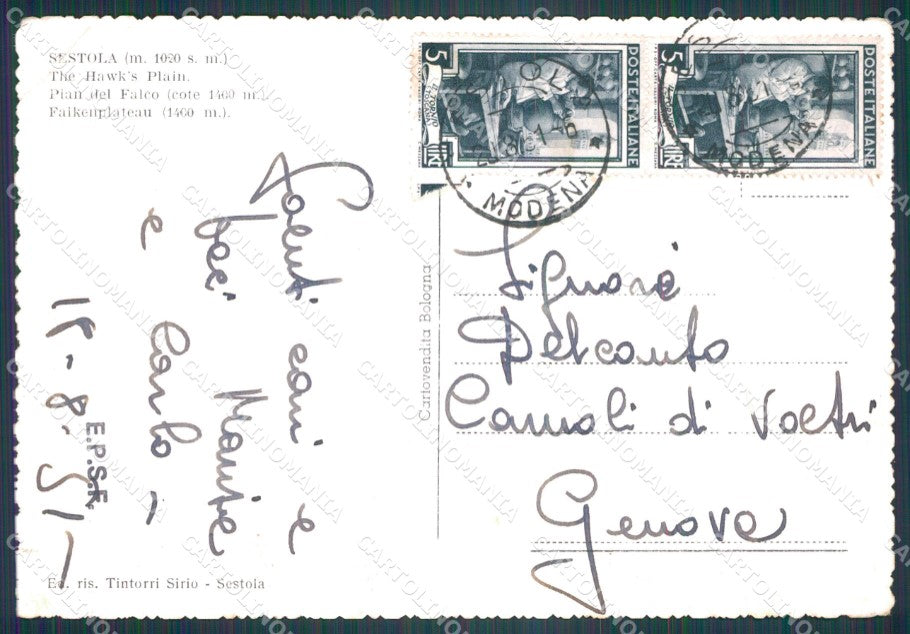 SESTOLA (m. 1020 s. m.)
The Hawk's Plain.
Pian del Falco (cote 1400 m.
Falkenplateau (1400 m.).
5 POSTE ITALIANE LIRE
5 POSTE ITALIANE LIRE
MODENA
MODENA
Saluti cari e
baci Marite
e Carlo -
18-8-51-
E.P.S.F.
Cartovendita Bologna
Signora
Delcanto
Camoli di Voltri
Genova
Ed. ris. Tintorri Sirio - Sestola
CARTOLINOMANIA